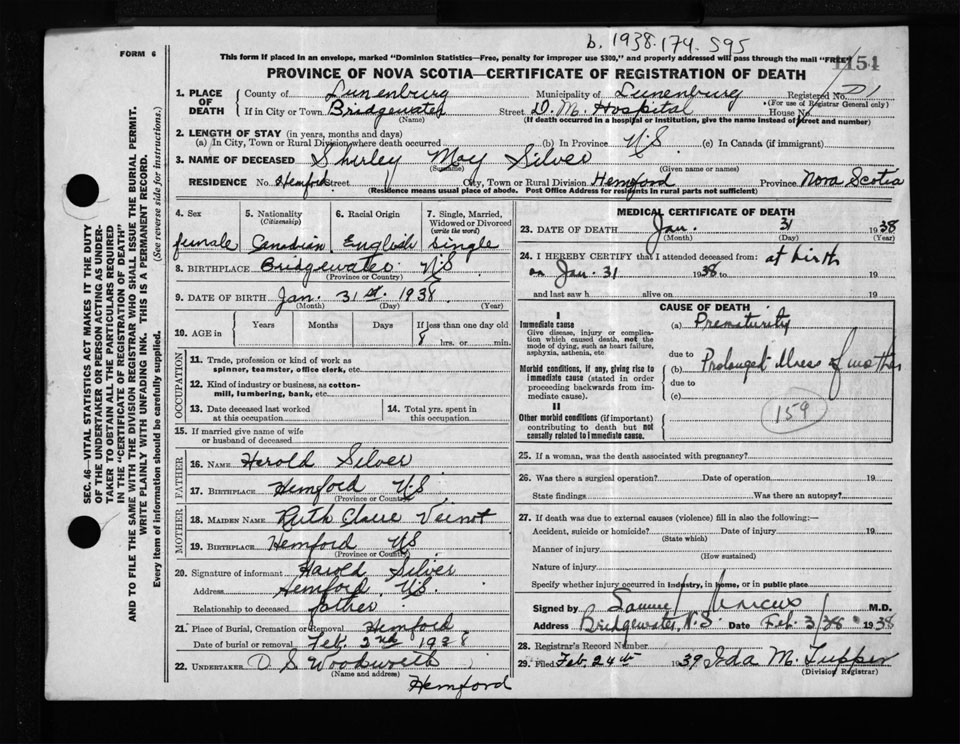 b. 1938.174.595
FORM 6
This form if placed in an envelope, marked "Dominion Statistics—Free, penalty for improper use $300," and properly addressed will pass through the mail "FREE"
1151
PROVINCE OF NOVA SCOTIA—CERTIFICATE OF REGISTRATION OF DEATH
1. PLACE OF DEATH County of Lunenburg Municipality of Lunenburg Registered No.
(For use of Registrar General only)
If in City or Town Bridgewater Street D. M. Hospital House No.
(Name) (If death occurred in a hospital or institution, give the name instead of street and number)
2. LENGTH OF STAY (in years, months and days)
(a) In City, Town or Rural Division where death occurred (b) In Province NS (c) In Canada (if immigrant)
3. NAME OF DECEASED Shirley May Silver
(Surname) (Given name or names)
RESIDENCE No. Hemford Street City, Town or Rural Division Hemford Province Nova Scotia
(Residence means usual place of abode. Post Office Address for residents in rural parts not sufficient)
4. Sex 5. Nationality (Citizenship) 6. Racial Origin 7. Single, Married, Widowed or Divorced (write the word)
female Canadian English Single
8. BIRTHPLACE Bridgewater NS
(Province or Country)
9. DATE OF BIRTH Jan. 31st. 1938
(Month) (Day) (Year)
10. AGE in Years Months Days If less than one day old
8 hrs. or min.
OCCUPATION
11. Trade, profession or kind of work as spinner, teamster, office clerk, etc.
12. Kind of industry or business, as cotton-mill, lumbering, bank, etc.
13. Date deceased last worked at this occupation
14. Total yrs. spent in this occupation
15. If married give name of wife or husband of deceased
FATHER
16. NAME Herold Silver
17. BIRTHPLACE Hemford NS
(Province or Country)
MOTHER
18. MAIDEN NAME Ruth Claire Veinot
19. BIRTHPLACE Hemford NS
(Province or Country)
20. Signature of informant Harold Silver
Address Hemford, NS.
Relationship to deceased father
21. Place of Burial, Cremation or Removal Hemford
Date of burial or removal Feb. 2nd 1938
22. UNDERTAKER O S Woodworth
(Name and address)
Hemford
MEDICAL CERTIFICATE OF DEATH
23. DATE OF DEATH Jan. 31 1938
(Month) (Day) (Year)
24. I HEREBY CERTIFY that I attended deceased from: at birth
on Jan. 31 1938 to 19
and last saw h alive on 19
CAUSE OF DEATH
I
Immediate cause
Give disease, injury or complication which caused death, not the mode of dying, such as heart failure, asphyxia, asthenia, etc.
(a) Prematurity
due to
Morbid conditions, if any, giving rise to immediate cause (stated in order proceeding backwards from immediate cause).
(b) Prolonged illness of mother
due to
(c)
II
Other morbid conditions (if important) contributing to death but not causally related to immediate cause.
159
25. If a woman, was the death associated with pregnancy?
26. Was there a surgical operation? Date of operation 19
State findings Was there an autopsy?
27. If death was due to external causes (violence) fill in also the following:—
Accident, suicide or homicide? Date of injury 19
(State which)
Manner of injury
(How sustained)
Nature of injury
Specify whether injury occurred in industry, in home, or in public place
Signed by Samuel Marcus M.D.
Address Bridgewater, N.S. Date Feb. 3/38 1938
28. Registrar's Record Number
29. Filed Feb. 24th 1939 Ida M. Tupper
(Division Registrar)
SEC. 46—VITAL STATISTICS ACT MAKES IT THE DUTY
OF THE UNDERTAKER OR PERSON ACTING AS UNDER-
TAKER TO OBTAIN ALL THE PARTICULARS REQUIRED
IN THE "CERTIFICATE OF REGISTRATION OF DEATH"
AND TO FILE THE SAME WITH THE DIVISION REGISTRAR WHO SHALL ISSUE THE BURIAL PERMIT.
WRITE PLAINLY WITH UNFADING INK. THIS IS A PERMANENT RECORD.
Every item of information should be carefully supplied. (See reverse side for instructions.)